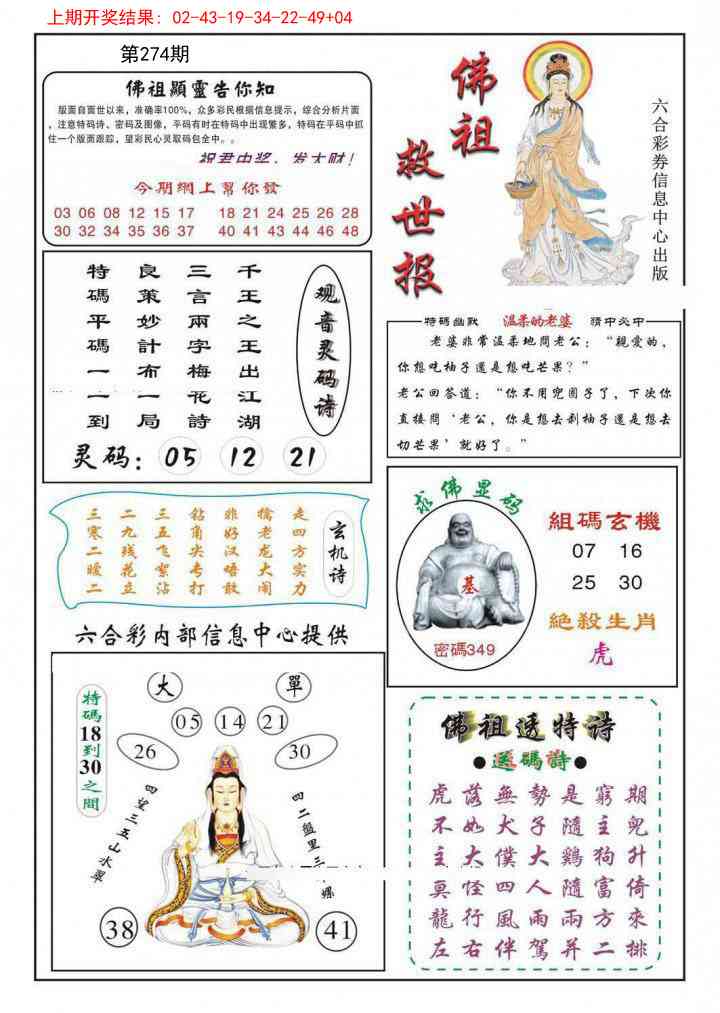 上期开奖结果：02-43-19-34-22-49+04
第274期
佛祖顯靈告你知
版面自面世以来，准确率100%，众多彩民根据信息提示，综合分析片面
，注意特码诗、密码及图像，平码有时在特码中出现繁多，特码在平码中抓
住一个版面跟踪，望彩民心灵取码包全中。。
祝君中奖，发大财！
今期網上幫你發
03 06 08 12 15 17 18 21 24 25 26 28
30 32 34 35 36 37 40 41 43 44 46 48
佛祖
救世报
六合彩券信息中心出版
观音灵码诗
千王之王出江湖
三言兩字梅花詩
良策妙計布一局
特碼平碼一一到
灵码：05 12 21
特碼幽默 温柔的老婆 猜中必中
老婆非常温柔地問老公：“親愛的，
你想吃柚子還是想吃芒果？”
老公回答道：“你不用兜圈子了，下次你
直接問‘老公，你是想去剥柚子還是想去
切芒果’就好了。”
玄机诗
走四方实力
擒老龙大闹
非好汉唔敢
钻角尖专打
三五飞絮沾
二九残花立
三寒二暖二
求佛显码
基
密碼349
組碼玄機
07 16
25 30
絶殺生肖
虎
六合彩内部信息中心提供
特碼18到30之間
大 單
05 14 21
26 30
四望三五山水翠
四二盤里三
螺
38 41
佛祖透特诗
送碼詩
虎落無勢是窮期
不如犬子隨主兜
主大僕大鷄狗升
莫怪四人隨富倚
龍行風雨兩方來
左右伴駕并二排